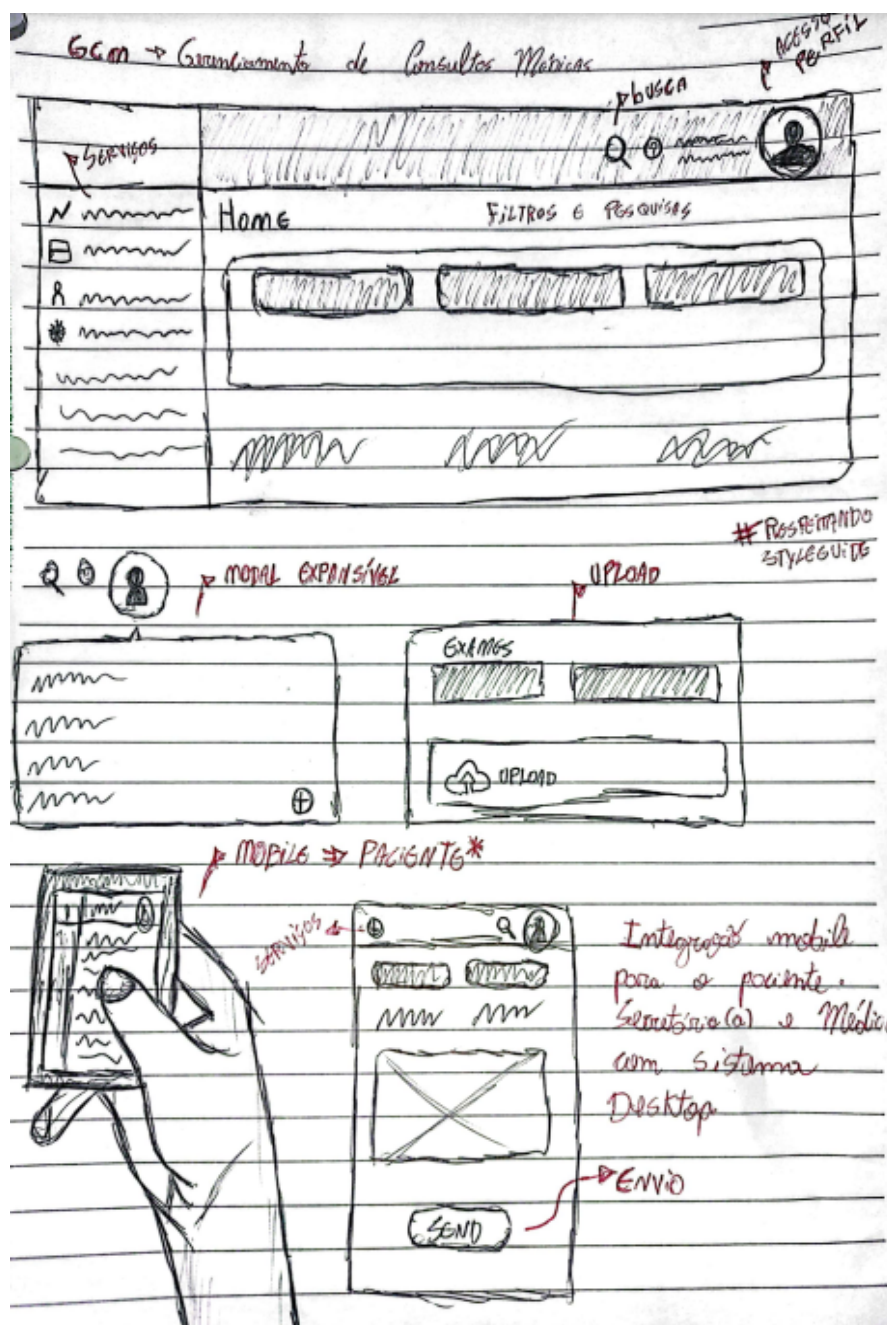 GCM → Gerenciamento de Consultas Médicas
ACESSO
PERFIL
BUSCA
SERVIÇOS
HOME
FILTROS E PESQUISAS
# RESPEITANDO
STYLEGUIDE
MODAL EXPANSÍVEL
UPLOAD
EXAMES
UPLOAD
MOBILE ⇒ PACIENTE*
SERVIÇOS
Integração mobile
para o paciente.
Secretário(a) e Médico
com sistema
Desktop
ENVIO
SEND